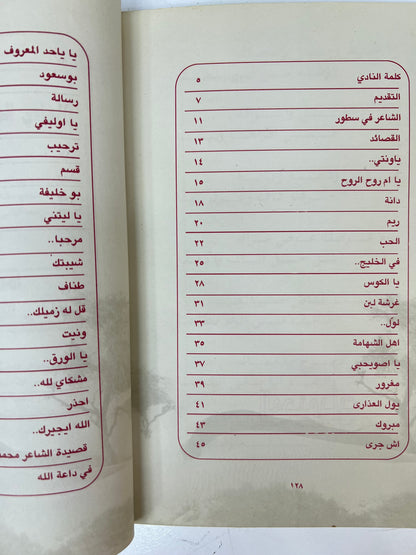 كلمة النادي ٥
التقديم ٧
الشاعر في سطور ١١
القصائد ١٣
ياونتي.. ١٤
يا ام روح الروح ١٥
دانة ١٨
ريم ٢٠
الحب ٢٢
في الخليج.. ٢٥
يا الكوس ٢٨
غرشة لبن ٣١
لول.. ٣٣
اهل الشهامة ٣٥
يا اصويحبي ٣٧
مغرور ٣٩
يول العذارى ٤١
مبروك ٤٣
اش جرى ٤٥
١٢٨
يا ياحد المعروف
بوسعود
رسالة
يا اوليفي
ترحيب
قسم
بو خليفة
يا ليتني
مرحبا..
شيبتك
طناف
قل له زميلك..
ونيت
يا الورق..
مشكاي لله..
احذر
الله ايجيرك..
قصيدة الشاعر
في داعة الله